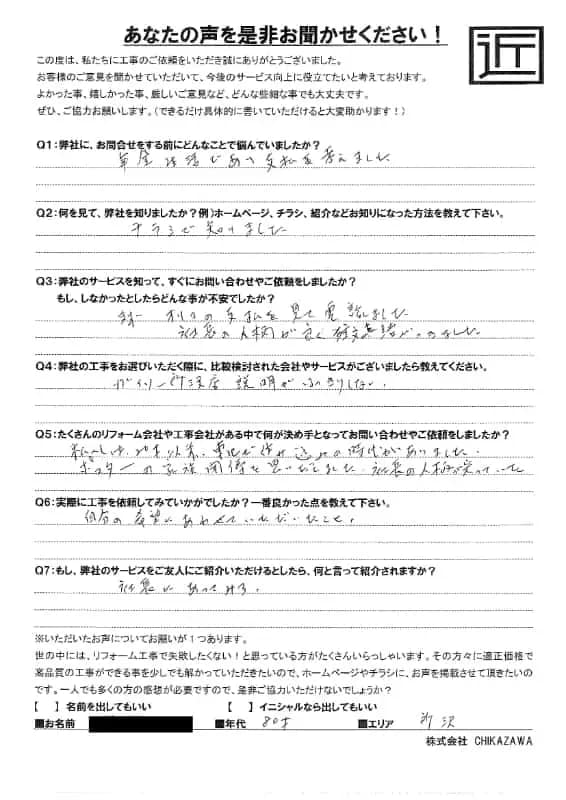 あなたの声を是非お聞かせください！
近
この度は、私たちに工事のご依頼をいただき誠にありがとうございました。
お客様のご意見を聞かせていただいて、今後のサービス向上に役立てたいと考えております。
よかった事、嬉しかった事、厳しいご意見など、どんな些細な事でも大丈夫です。
ぜひ、ご協力お願いします。（できるだけ具体的に書いていただけると大変助かります！）
Q1：弊社に、お問合せをする前にどんなことで悩んでいましたか？
年金生活であり支払を考えました
Q2：何を見て、弊社を知りましたか？例）ホームページ、チラシ、紹介などお知りになった方法を教えて下さい。
チラシで知りました
Q3：弊社のサービスを知って、すぐにお問い合わせやご依頼をしましたか？
もし、しなかったとしたらどんな事が不安でしたか？
の支払を見て電話しました
社長の人柄が良く
Q4：弊社の工事をお選びいただく際に、比較検討された会社やサービスがございましたら教えてください。
説明がはっきりしない
Q5：たくさんのリフォーム会社や工事会社がある中で何が決め手となってお問い合わせやご依頼をしましたか？
の時代がありました.
社長の人柄が
Q6：実際に工事を依頼してみていかがでしたか？一番良かった点を教えて下さい。
自分の希望にあわせていただいたこと.
Q7：もし、弊社のサービスをご友人にご紹介いただけるとしたら、何と言って紹介されますか？
社長にあってみろ.
※いただいたお声についてお願いが１つあります。
世の中には、リフォーム工事で失敗したくない！と思っている方がたくさんいらっしゃいます。その方々に適正価格で
高品質の工事ができる事を少しでも解かっていただきたいので、ホームページやチラシに、お声を掲載させて頂きたいの
です。一人でも多くの方の感想が必要ですので、是非ご協力いただけないでしょうか？
【　】名前を出してもいい　【　】イニシャルなら出してもいい
■お名前　■年代　80才　■エリア　所沢
株式会社 CHIKAZAWA